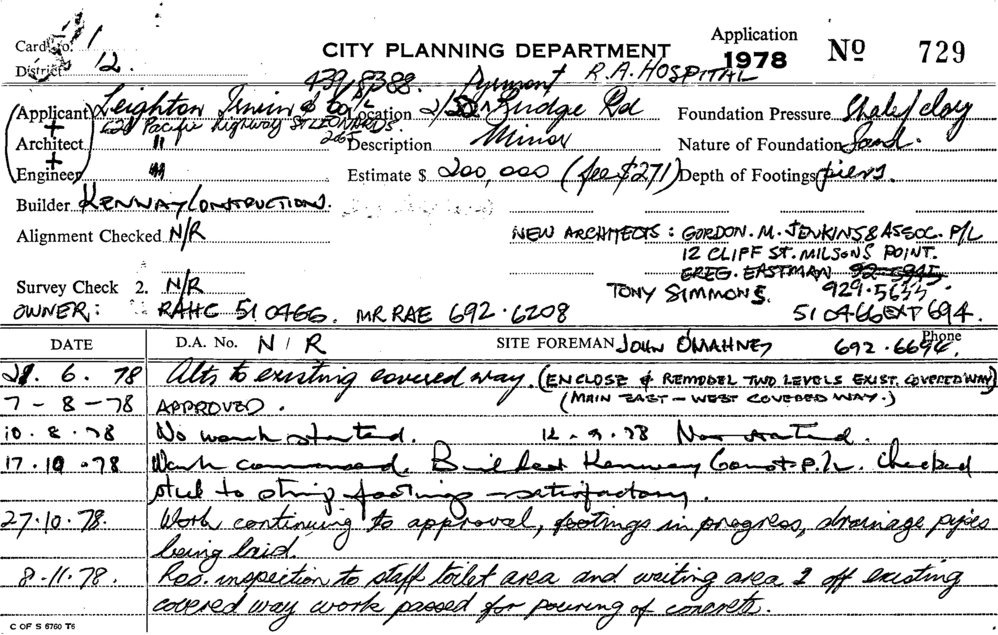 Card No. 1
District 12.
CITY PLANNING DEPARTMENT
Application
1978 No 729
439/8388. Pyrmont R.A. HOSPITAL
Applicant Leighton Irwin & Co P/L Location Bridge Rd Foundation Pressure Shale/clay
Pacific Highway ST LEONARDS.
2065
+
Architect " Description Minor Nature of Foundation Sand.
+
Engineer " Estimate $ 200,000 (fee $271) Depth of Footings piers.
Builder KENWAY CONSTRUCTIONS.
Alignment Checked N/R NEW ARCHITECTS: GORDON. M. JENKINS & ASSOC. P/L
12 CLIFF ST. MILSONS POINT.
GREG. EASTMAN
Survey Check 2. N/R TONY SIMMONS. 929.5655
OWNER: RAHC 51 0466. MR RAE 692.6208 51 0466 EXT 694.
DATE D.A. No. N/R SITE FOREMAN JOHN O'MAHNEY 692.6694. Phone
21. 6. 78 Alts to existing covered way. (ENCLOSE & REMODEL TWO LEVELS EXIST. COVERED WAY)
7-8-78 APPROVED. (MAIN EAST-WEST COVERED WAY.)
10.8.78 No work started. 12.9.78 Not started.
17.10.78 Work commenced. Builder Kenway Const. P.L. Checked
steel to strip footings - satisfactory.
27.10.78. Work continuing to approval, footings in progress, drainage pipes
being laid.
8.11.78. Res. inspection to staff toilet area and waiting area 2 off existing
covered way work passed for pouring of concrete.
C OF S 6760 T6